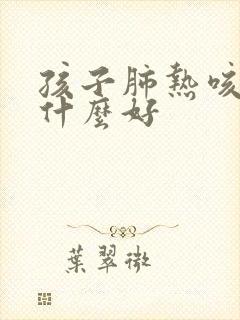 孩子肺熱咳
什麼好
葉翠微